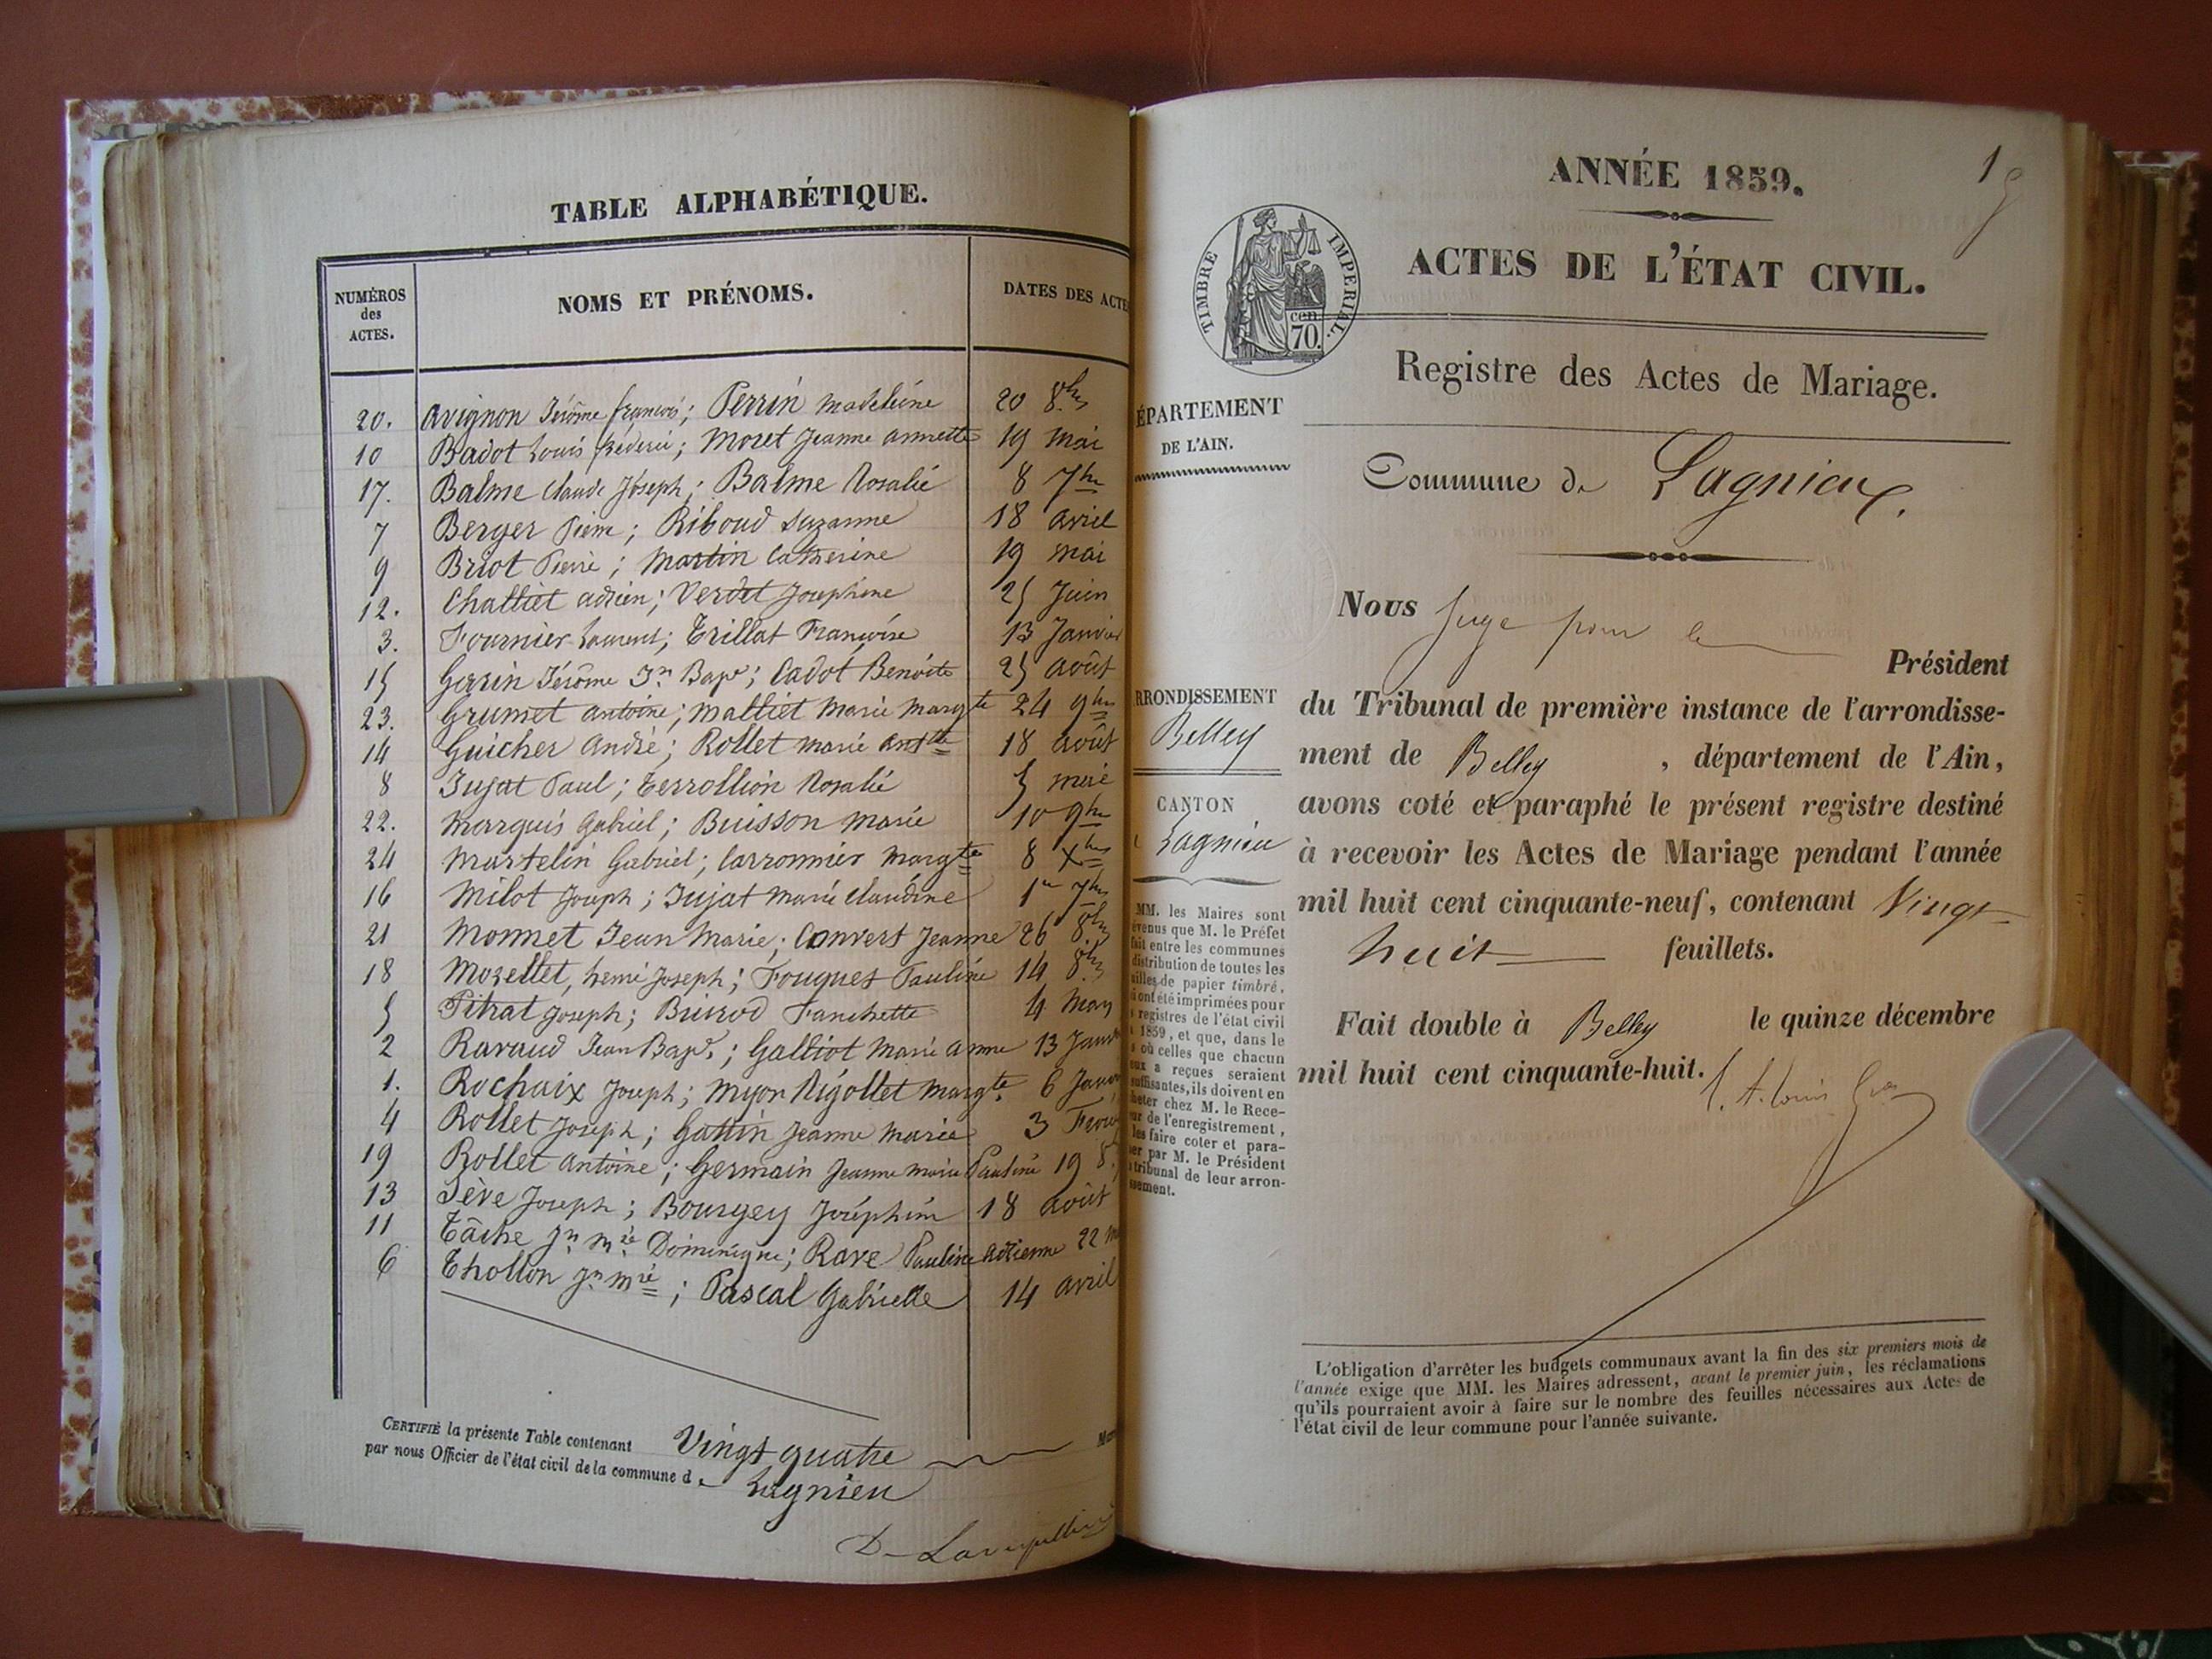 TABLE ALPHABÉTIQUE.
NUMÉROS des ACTES. NOMS ET PRÉNOMS. DATES DES ACTE
20. Avignon Jérôme françois; Perrin Madeleine 20 8bre
10 Badot Louis fréderic; Moret Jeanne Annette 19 Mai
17. Balme Claude Joseph; Balme Rosalie 8 7bre
7 Berger Pierre; Riboud Suzanne 18 avril
9 Briot Pierre; Martin Catherine 19 mai
12. Challiet adrien; Verdet Josephine 25 Juin
3. Fournier Laurent; Trillat Françoise 13 Janvier
15 Garin Jérôme Jn Bapte; Cadot Benoite 25 août
23. Grumet antoine; Malliet Marie Margte 24 9bre
14 Guicher André; Rollet Marie Antte 18 août
8 Jujat Paul; Terrollion Rosalie 5 mai
22. Marquis Gabriel; Buisson Marie 10 9bre
24 Martelin Gabriel; Carronnier Margte 8 Xbre
16 Milot Joseph; Jujat Marie Claudine 1er 7bre
21 Monnet Jean Marie; Convert Jeanne 26 8bre
18 Mozellet, henri Joseph; Fouques Pauline 14 8bre
5 Pitrat Joseph; Fanchette 4 Mars
2 Ravaud Jean Bapte; Galliot Marie Anne 13 Janv
1. Rochaix Joseph; Myon Rigollet Margte 6 Janv
4 Rollet Joseph; Gattin Jeanne Marie 3
19 Rollet Antoine; Germain Jeanne Marie Pauline 19 8
13 Sève Joseph; Bourgey Joséphine 18 août
11 Tâche Jn Mie Dominique; Rave Pauline Adrienne 22 m
6 Thollon Jn Mie; Pascal Gabrielle 14 avril
CERTIFIÉ la présente Table contenant Vingt quatre Mar
par nous Officier de l'état civil de la commune de Lagnieu
ANNÉE 1859.
1
TIMBRE IMPÉRIAL.
cen. 70.
ACTES DE L'ÉTAT CIVIL.
Registre des Actes de Mariage.
ÉPARTEMENT
DE L'AIN.
Commune de Lagnieu.
RRONDISSEMENT
Belley
CANTON
Lagnieu
MM. les Maires sont
évenus que M. le Préfet
fait entre les communes
distribution de toutes les
uilles de papier timbré,
i ont été imprimées pour
s registres de l'état civil
1859, et que, dans le
s où celles que chacun
eux a reçues seraient
suffisantes, ils doivent en
heter chez M. le Rece-
ur de l'enregistrement,
les faire coter et para-
er par M. le Président
tribunal de leur arron-
ssement.
Nous Juge pour le Président
du Tribunal de première instance de l'arrondisse-
ment de Belley, département de l'Ain,
avons coté et paraphé le présent registre destiné
à recevoir les Actes de Mariage pendant l'année
mil huit cent cinquante-neuf, contenant Vingt
huit feuillets.
Fait double à Belley le quinze décembre
mil huit cent cinquante-huit.
L'obligation d'arrêter les budgets communaux avant la fin des six premiers mois de
l'année exige que MM. les Maires adressent, avant le premier juin, les réclamations
qu'ils pourraient avoir à faire sur le nombre des feuilles nécessaires aux Actes de
l'état civil de leur commune pour l'année suivante.